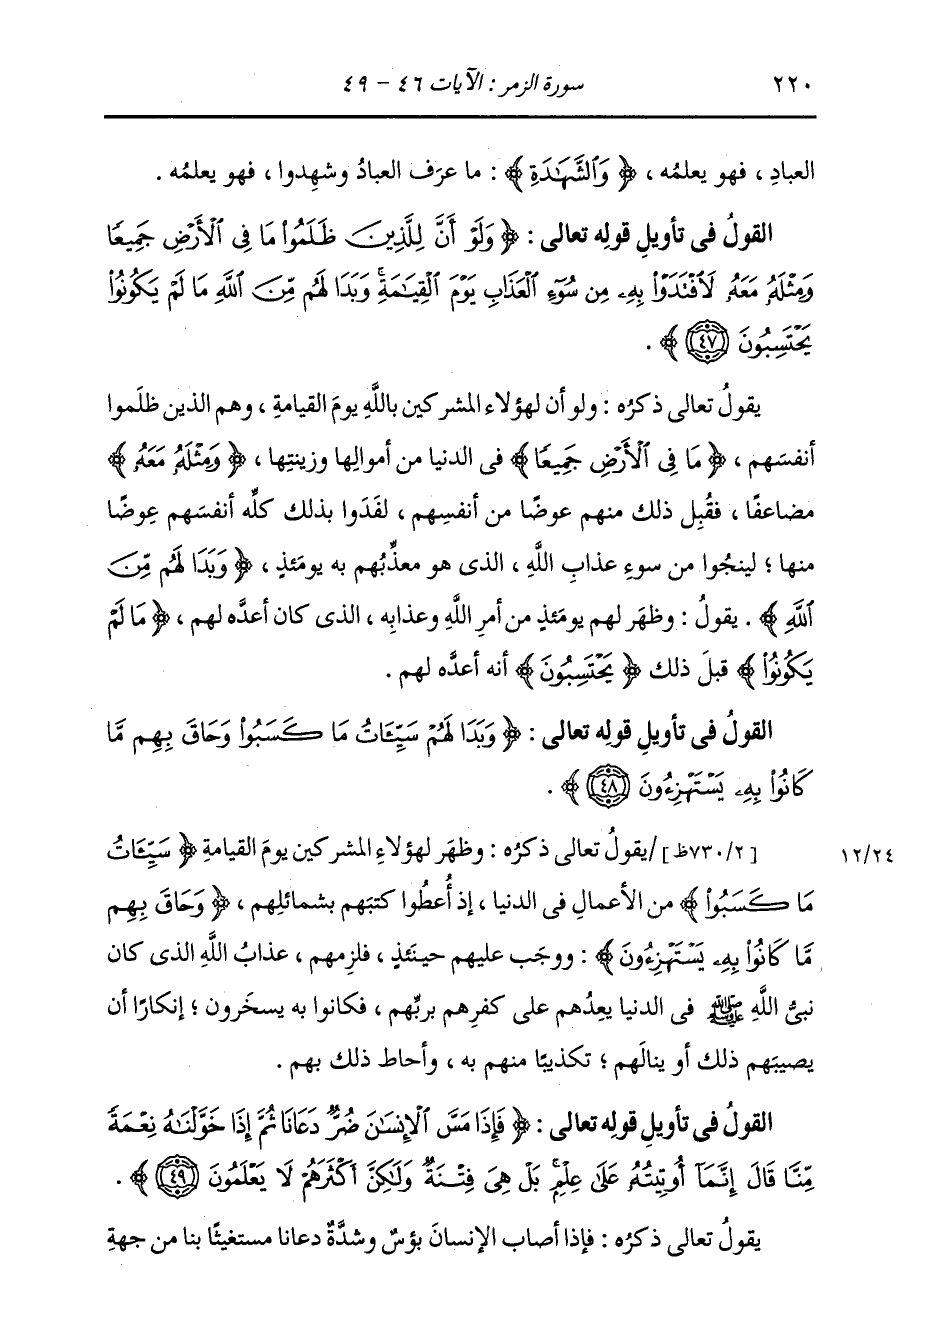 ٢٢٠ سورة الزمر : الآيات ٤٦ - ٤٩
العبادِ ، فهو يعلمُه ، ﴿ وَٱلشَّهَٰدَةِ ﴾ : ما عرَف العبادُ وشهِدوا ، فهو يعلمُه .
القولُ فى تأويلِ قولِه تعالى : ﴿ وَلَوْ أَنَّ لِلَّذِينَ ظَلَمُواْ مَا فِى ٱلْأَرْضِ جَمِيعًا
وَمِثْلَهُۥ مَعَهُۥ لَٱفْتَدَوْاْ بِهِۦ مِن سُوٓءِ ٱلْعَذَابِ يَوْمَ ٱلْقِيَٰمَةِۚ وَبَدَا لَهُم مِّنَ ٱللَّهِ مَا لَمْ يَكُونُواْ
يَحْتَسِبُونَ ﴿٤٧﴾ ﴾ .
يقولُ تعالى ذكرُه : ولو أن لهؤلاء المشركين باللَّهِ يومَ القيامةِ ، وهم الذين ظلَموا
أنفسَهم ، ﴿ مَا فِى ٱلْأَرْضِ جَمِيعًا ﴾ فى الدنيا من أموالِها وزينتِها ، ﴿ وَمِثْلَهُۥ مَعَهُۥ ﴾
مضاعفًا ، فقُبِل ذلك منهم عوضًا من أنفسِهم ، لفَدَوا بذلك كلِّه أنفسَهم عِوضًا
منها ؛ لينجُوا من سوءِ عذابِ اللَّهِ ، الذى هو معذِّبُهم به يومَئذٍ ، ﴿ وَبَدَا لَهُم مِّنَ
ٱللَّهِ ﴾ . يقولُ : وظهَر لهم يومَئذٍ من أمرِ اللَّهِ وعذابِه ، الذى كان أعدَّه لهم ، ﴿ مَا لَمْ
يَكُونُواْ ﴾ قبلَ ذلك ﴿ يَحْتَسِبُونَ ﴾ أنه أعدَّه لهم .
القولُ فى تأويلِ قولِه تعالى : ﴿ وَبَدَا لَهُمْ سَيِّـَٔاتُ مَا كَسَبُواْ وَحَاقَ بِهِم مَّا
كَانُواْ بِهِۦ يَسْتَهْزِءُونَ ﴿٤٨﴾ ﴾ .
[ ٧٣٠/٢ظ ] /يقولُ تعالى ذكرُه : وظهَر لهؤلاءِ المشركين يومَ القيامةِ ﴿ سَيِّـَٔاتُ ١٢/٢٤
مَا كَسَبُواْ ﴾ من الأعمالِ فى الدنيا ، إذ أُعطُوا كتبَهم بشمائلِهم ، ﴿ وَحَاقَ بِهِم
مَّا كَانُواْ بِهِۦ يَسْتَهْزِءُونَ ﴾ : ووجَب عليهم حينَئذٍ ، فلزِمهم ، عذابُ اللَّهِ الذى كان
نبىُّ اللَّهِ ﷺ فى الدنيا يعِدُهم على كفرِهم بربِّهم ، فكانوا به يسخَرون ؛ إنكارًا أن
يصيبَهم ذلك أو ينالَهم ؛ تكذيبًا منهم به ، وأحاط ذلك بهم .
القولُ فى تأويلِ قولِه تعالى : ﴿ فَإِذَا مَسَّ ٱلْإِنسَٰنَ ضُرٌّ دَعَانَا ثُمَّ إِذَا خَوَّلْنَٰهُ نِعْمَةً
مِّنَّا قَالَ إِنَّمَآ أُوتِيتُهُۥ عَلَىٰ عِلْمٍۭ بَلْ هِىَ فِتْنَةٌ وَلَٰكِنَّ أَكْثَرَهُمْ لَا يَعْلَمُونَ ﴿٤٩﴾ ﴾ .
يقولُ تعالى ذكرُه : فإذا أصاب الإنسانَ بؤسٌ وشدَّةٌ دعانا مستغيثًا بنا من جهةِ